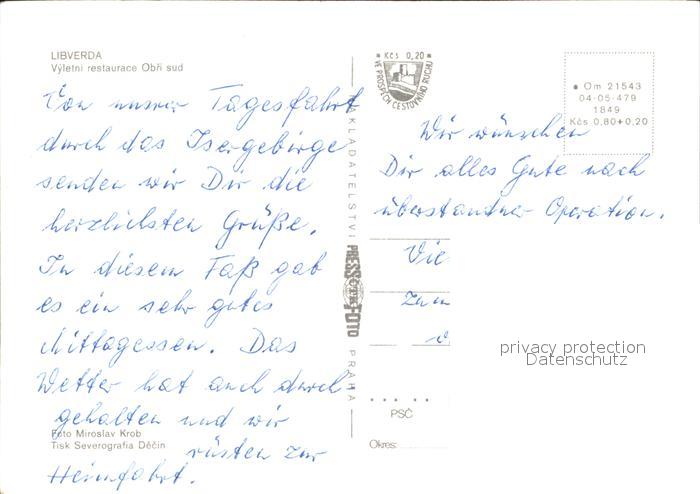 LIBVERDA
Výletní restaurace Obří sud
Von unsrer Tagesfahrt
durch das Isergebirge
senden wir Dir die
herzlichsten Grüße.
In diesem Faß gab
es ein sehr gutes
Mittagessen. Das
Wetter hat auch durch
gehalten und wir
rüsten zur
Heimfahrt.
Foto Miroslav Krob
Tisk Severografia Děčín
NAKLADATELSTVÍ
PRESSFOTO
PRAHA
Kčs 0,20
VE PROSPĚCH CESTOVNÍHO RUCHU
Om 21543
04-05-479
1849
Kčs 0,80+0,20
Wir wünschen
Dir alles Gute nach
überstandner Operation.
Vie
zum
PSČ
Okres:
privacy protection
Datenschutz